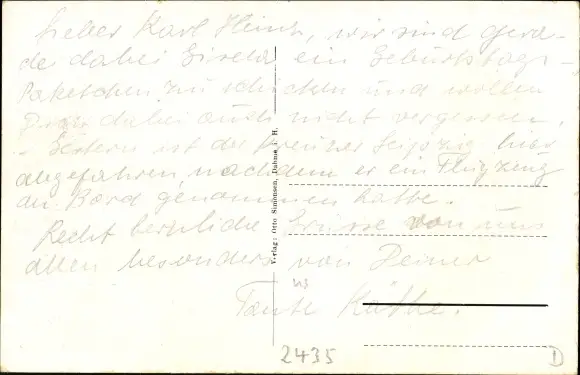 Lieber Karl Heinz, wir sind gera-
de dabei Gisela ein Geburtstags-
Paketchen zu schicken und wollen
Dich dabei auch nicht vergessen.
- Gestern ist der Kreuzer Leipzig hier
abgefahren nachdem er ein Flugzeug
an Bord genommen hatte.
Recht herzliche Grüsse von uns
allen besonders von Deiner
Tante Käthe.
Verlag: Otto Simonsen, Dahme i. H.
2435
D